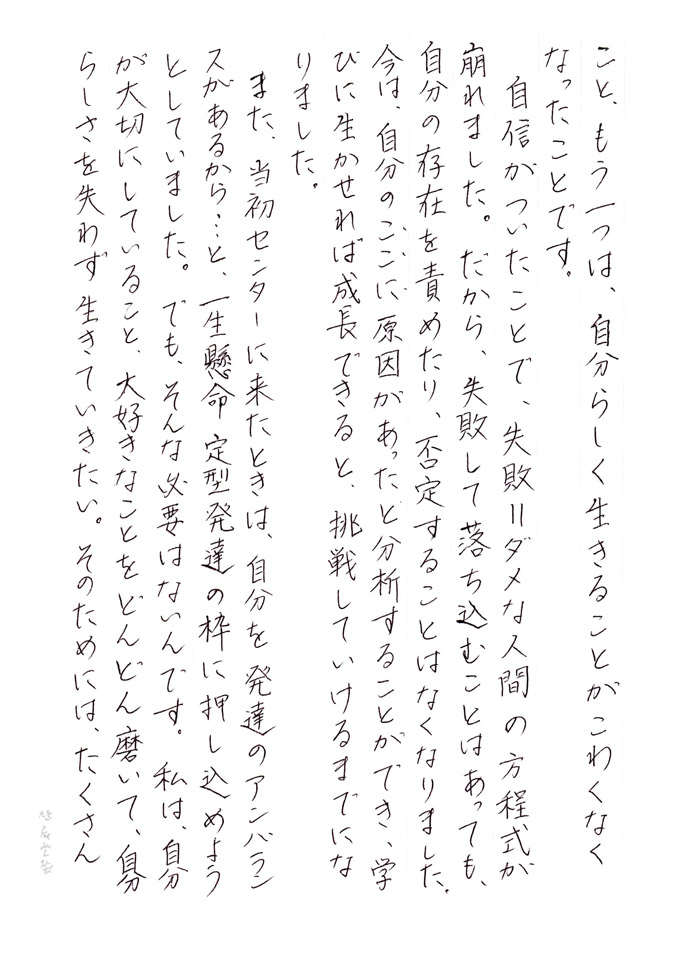 こと、もう一つは、自分らしく生きることがこわくなく
なったことです。
自信がついたことで、失敗=ダメな人間の方程式が
崩れました。だから、失敗して落ち込むことはあっても、
自分の存在を責めたり、否定することはなくなりました。
今は、自分のここに原因があったと分析することができ、学
びに生かせれば成長できると、挑戦していけるまでにな
りました。
また、当初センターに来たときは、自分を発達のアンバラン
スがあるから…と、一生懸命定型発達の枠に押し込めよう
としていました。でも、そんな必要はないんです。私は、自分
が大切にしていること、大好きなことをどんどん磨いて、自分
らしさを失わず生きていきたい。そのためには、たくさん